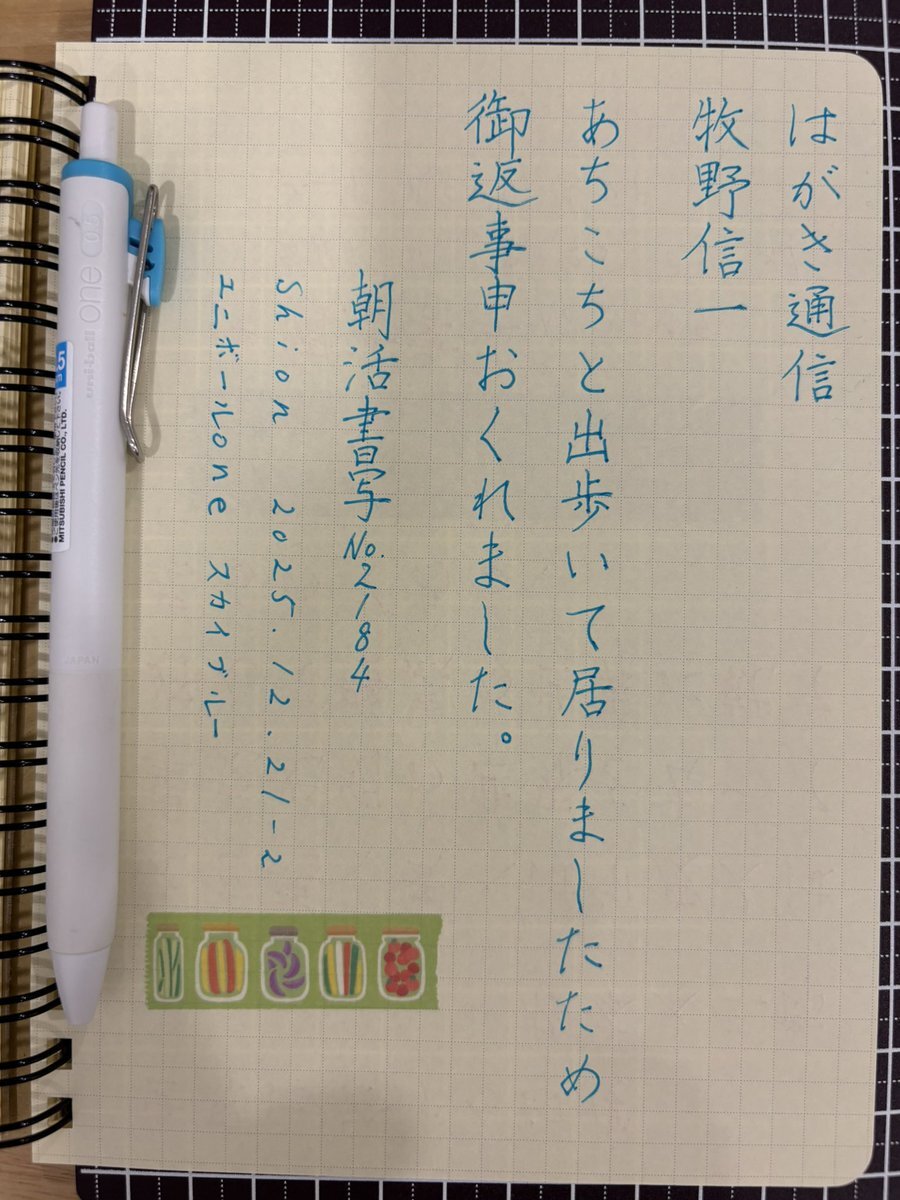 はがき通信
牧野信一
あちこちと出歩いて居りましたため
御返事申おくれました。
朝活書写No.2184
Shion 2025.12.21-2
ユニボールone スカイブルー
uni-ball one 0.5
MITSUBISHI PENCIL CO., LTD.
JAPAN